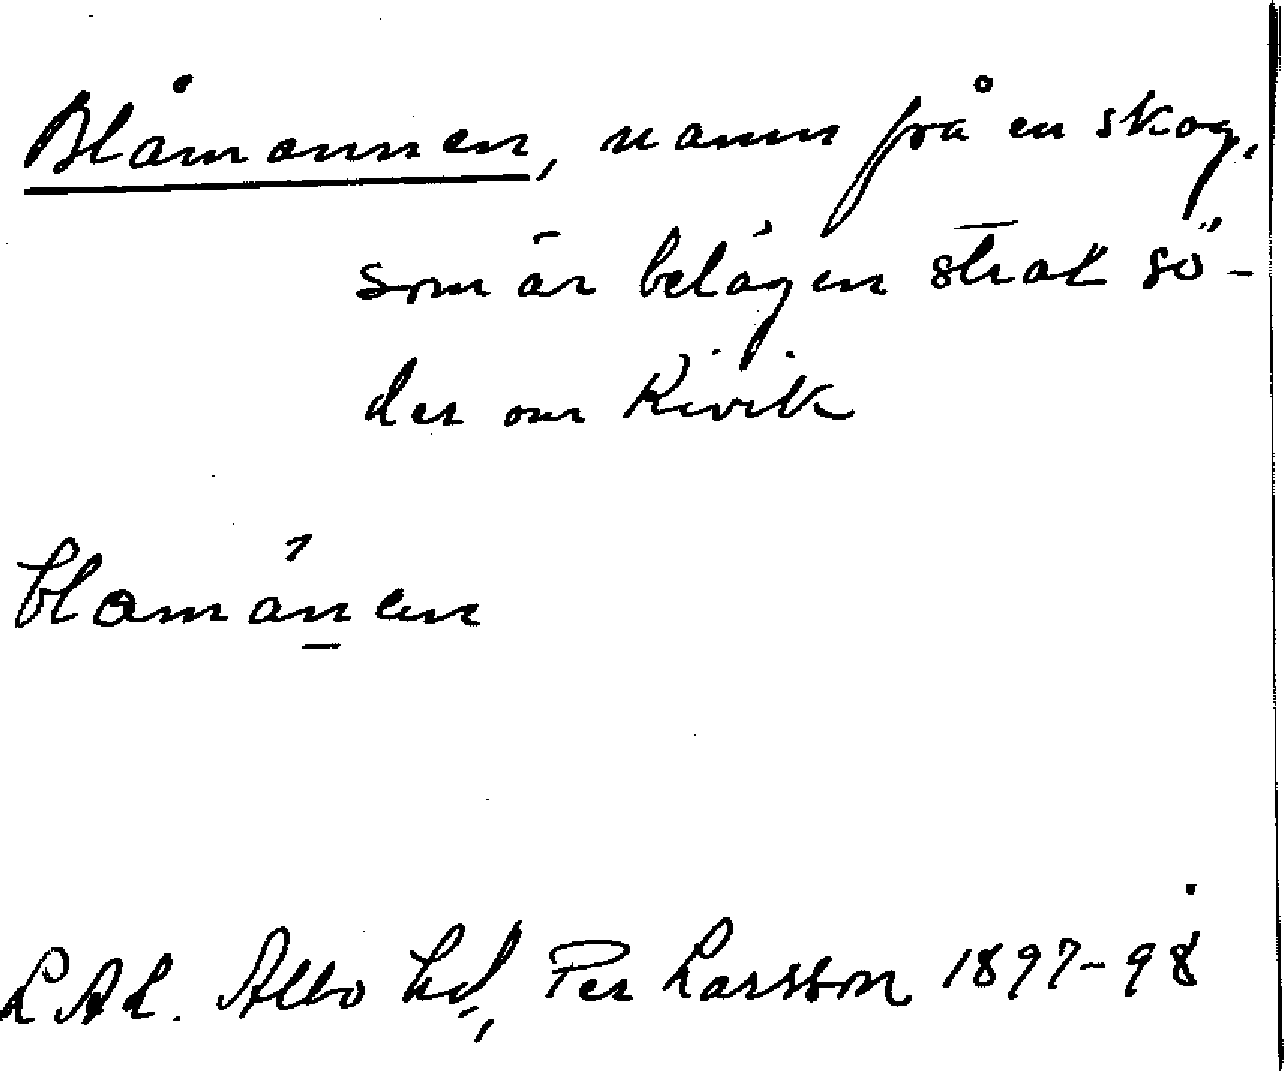 Blåmannen, namn på en skog,
som är belägen strax sö-
der om Kivik
blamánen
LAL. Albo hd, Per Larsson 1897-98